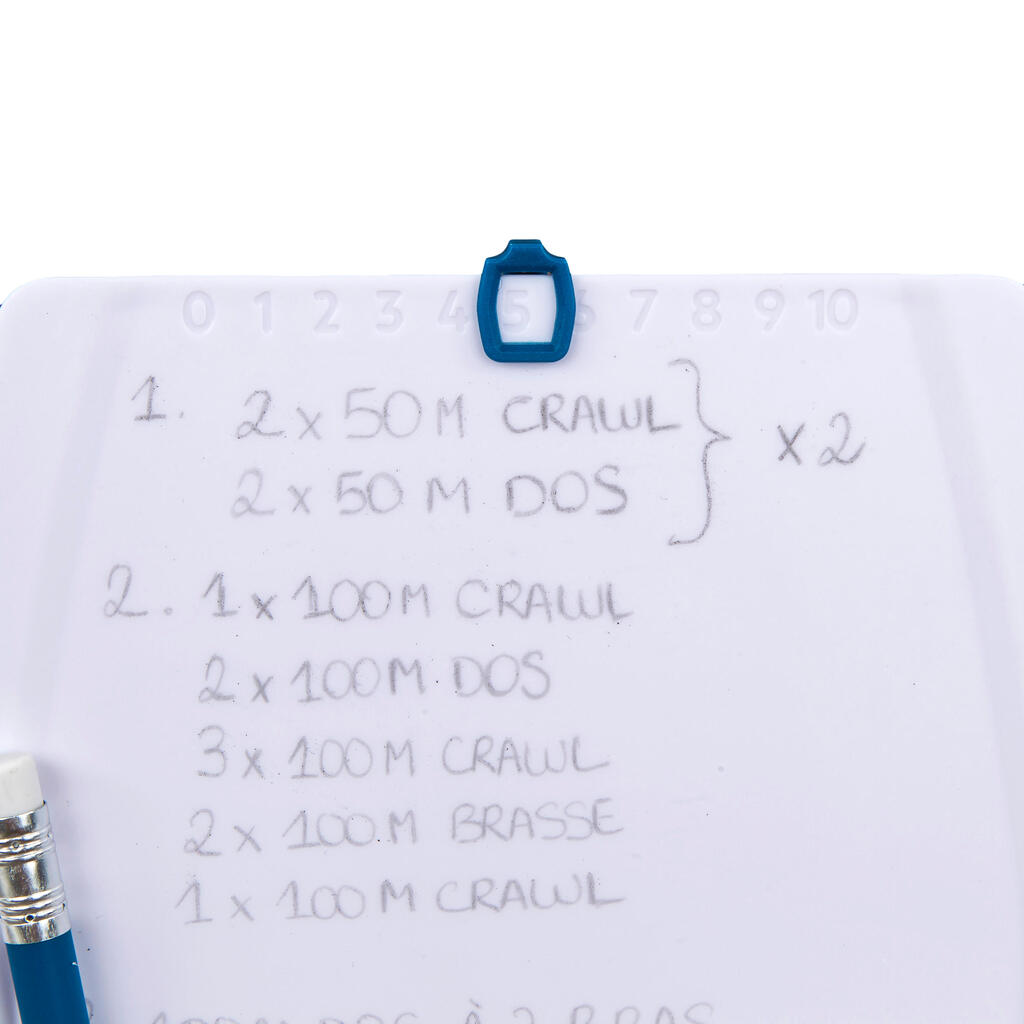 0 1 2 3 4 5 6 7 8 9 10
1. 2 x 50M CRAWL } x2
2 x 50 M DOS
2. 1 x 100M CRAWL
2 x 100M DOS
3 x 100M CRAWL
2 x 100M BRASSE
1 x 100M CRAWL
100M DOS À 2 BRAS